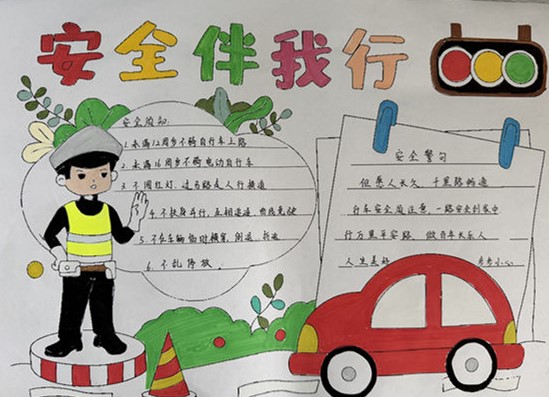 安全伴我行
安全须知:
1.未满12周岁不骑自行车上路
2.未满16周岁不骑电动自行车
3.不闯红灯,过马路走人行横道
4.不扶身并行,互相追逐,曲线竞驶
5.不在车辆临时横穿,倒道,折返
6.不乱停放.
安全警句
但愿人长久,千里路畅通
行车安全须注意,一路安全到家中
行万里平安路,做百年长乐人
人生美好 步步小心